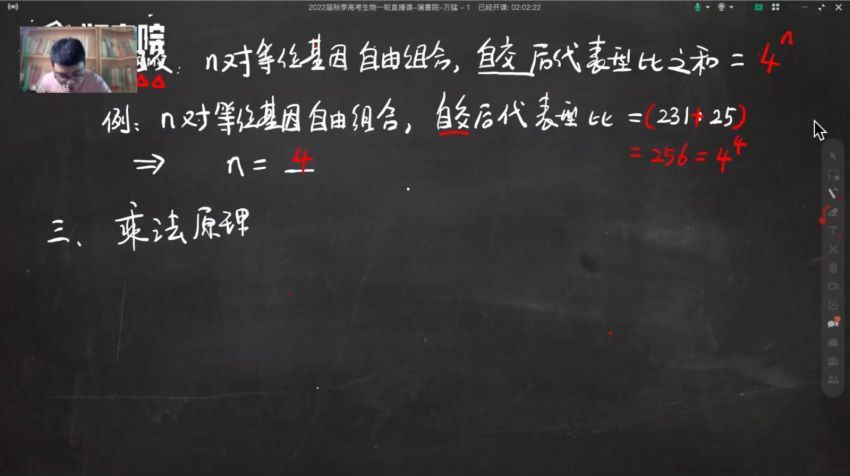 2022届秋季高考生物一轮直播课-澜書院-万猛 - 1 已经开课: 02:02:22
n对等位基因自由组合, 自交后代表型比之和 = 4ⁿ
例: n对等位基因自由组合, 自交后代表型比 = (231:25)
= 256 = 4⁴
⇒ n = 4
三、乘法原理